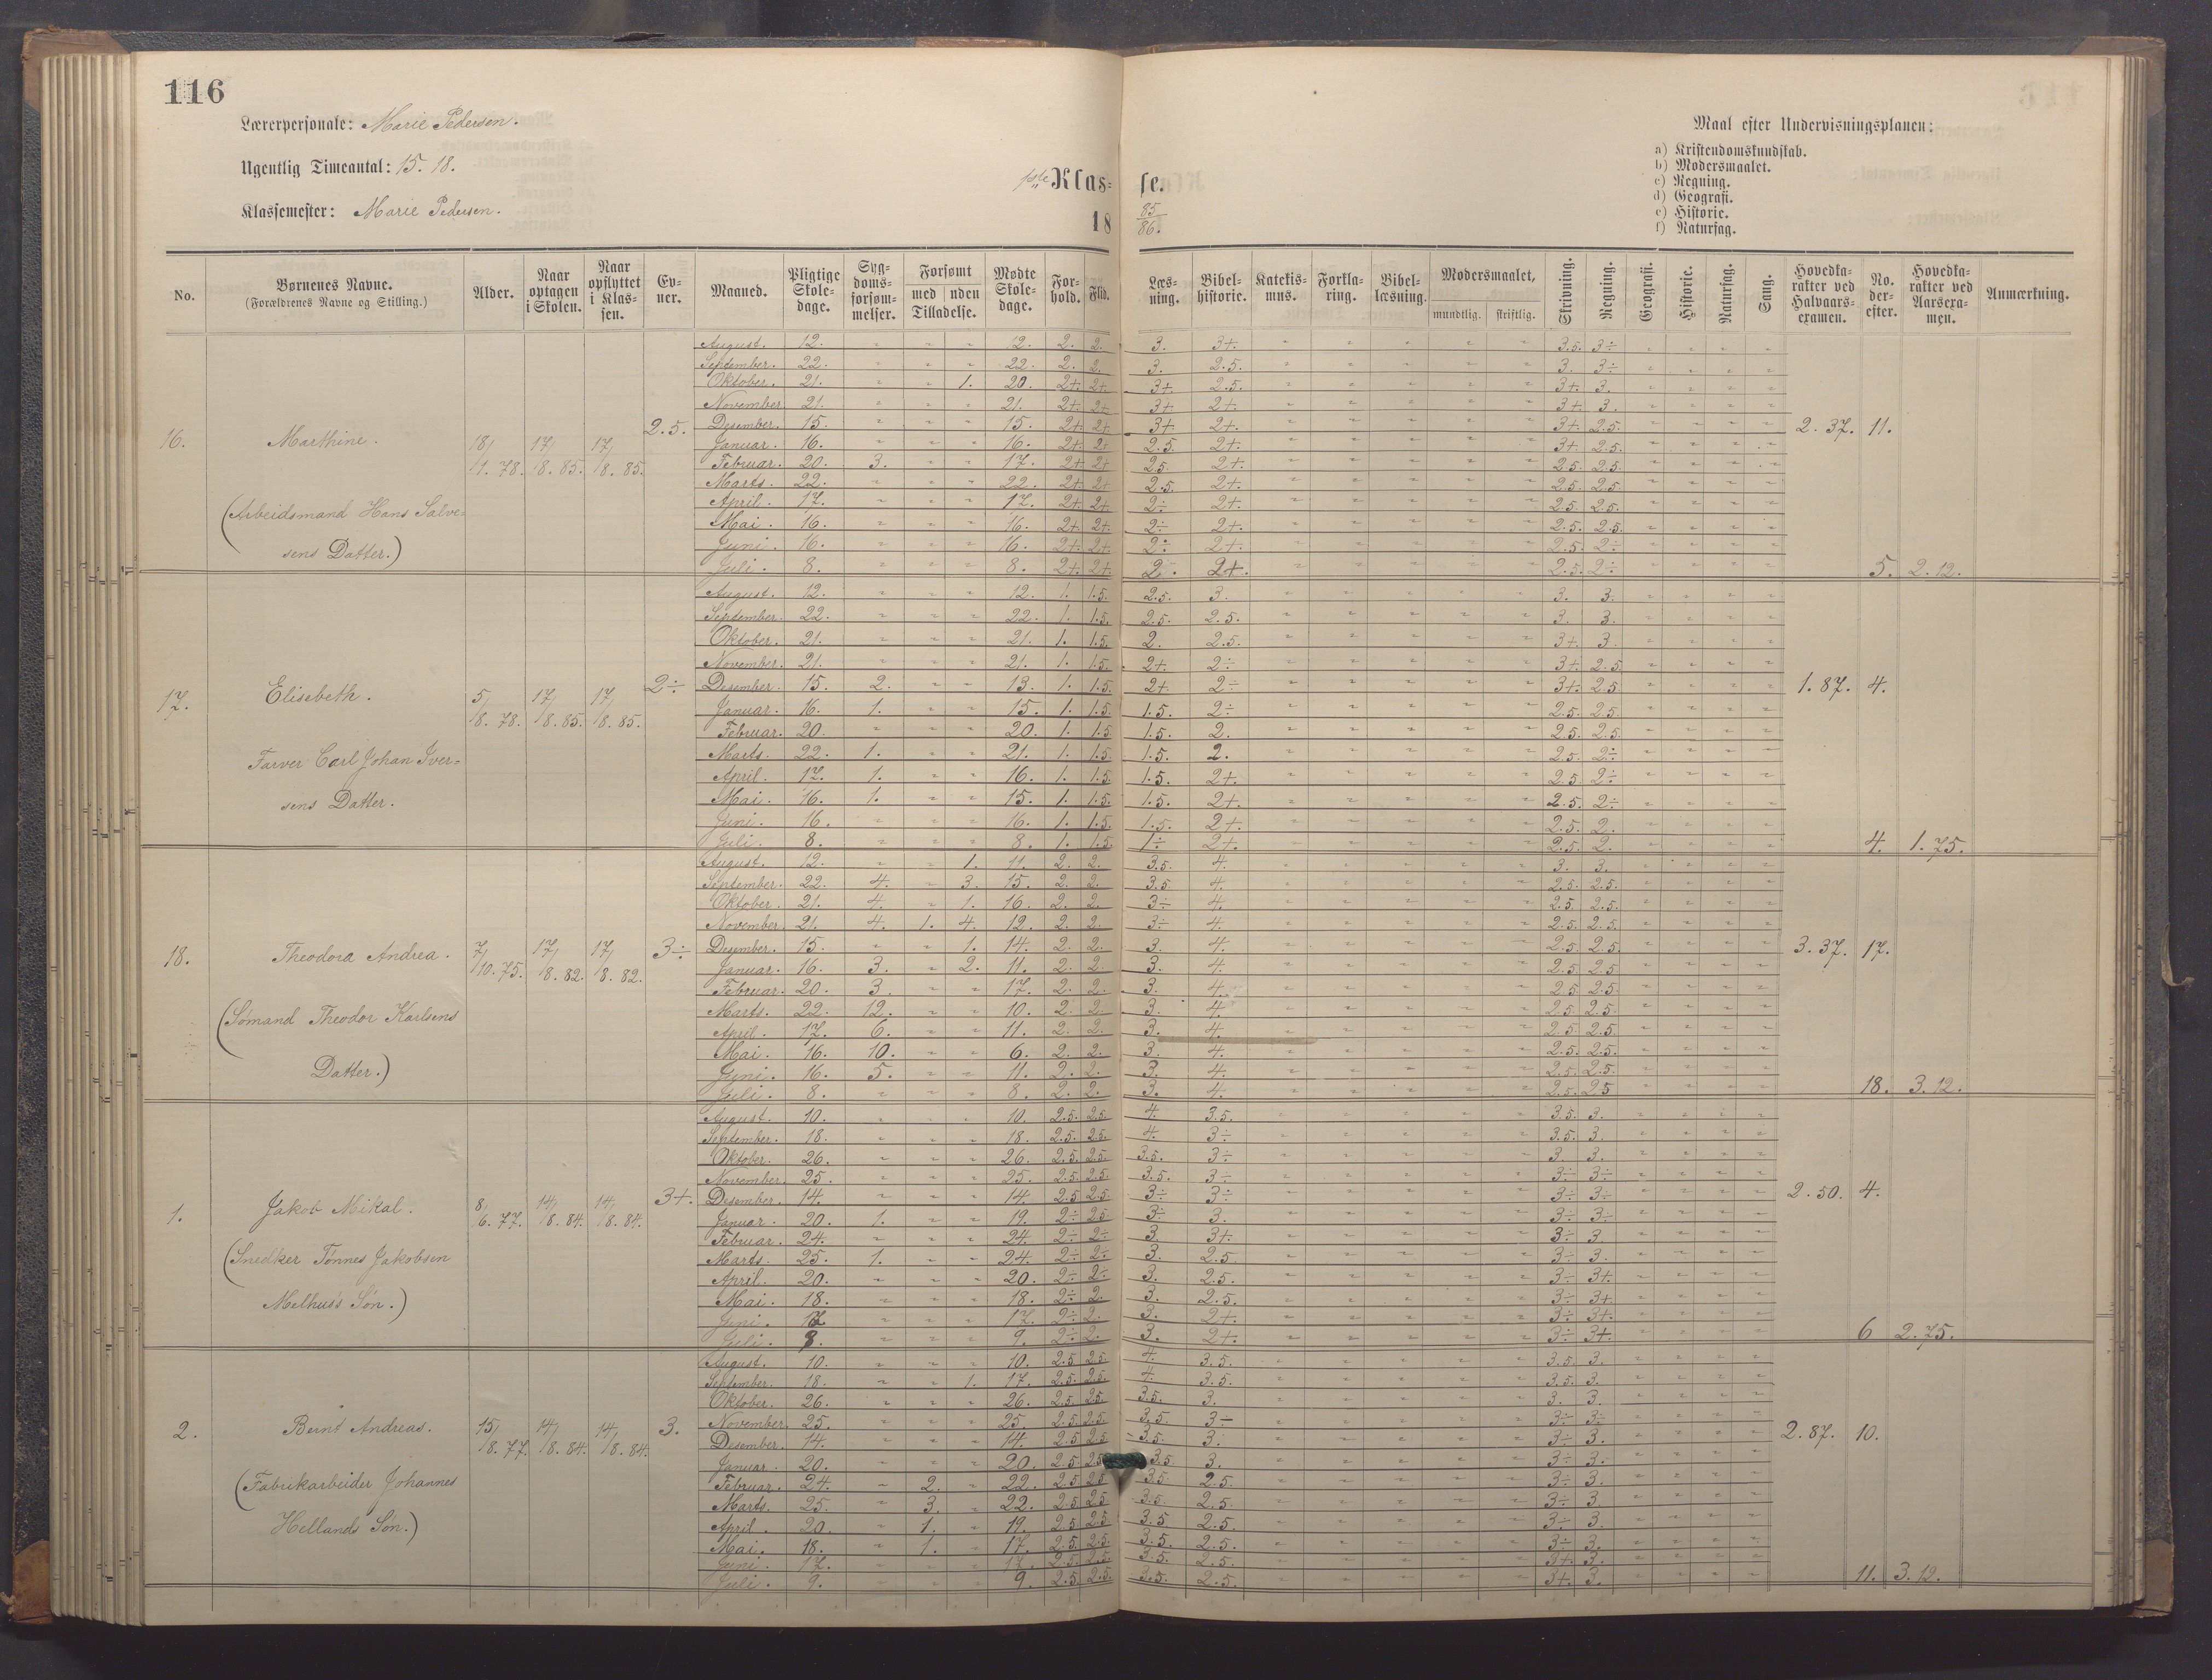 116
Lærerpersonale: Marie Pedersen.
Ugentlig Timeantal: 15. 18.
Klassemester: Marie Pedersen.
1ste Klas-
se.
18
85/86.
Maal efter Undervisningsplanen:
a) Kristendomskundskab.
b) Modersmaalet.
c) Regning.
d) Geografi.
e) Historie.
f) Naturfag.
No. | Børnenes Navne. (Forældrenes Navne og Stilling.) | Alder. | Naar optagen i Skolen. | Naar opflyttet i Klassen. | Evner. | Maaned. | Pligtige Skoledage. | Sygdomsforsømmelser. | Forsømt med uden Tilladelse. | Mødte Skoledage. | Forhold. | Flid. | Læsning. | Bibelhistorie. | Katekismus. | Forklaring. | Bibellæsning. | Modersmaalet, mundtlig. skriftlig. | Skrivning. | Regning. | Geografi. | Historie. | Naturfag. | Sang. | Hovedkarakter ved Halvaarsexamen. | No. derefter. | Hovedkarakter ved Aarsexamen. | Anmærkning.
16. Marthine. 18/11. 78. 17/8. 85. 17/8. 85. 2.5. 2.37. 11.
(Arbeidsmand Hans Salve-
sens Datter.)
August. 12. 12. 2. 2. 3. 3+. 3.5. 3÷
September. 22. 22. 2. 2. 3. 2.5. 3. 3÷
Oktober. 21. 1. 20. 2+. 2+. 3+ 2.5. 3+. 3.
November. 21. 21. 2+. 2+. 3+ 2+. 3+. 3.
Desember. 15. 15. 2+. 2+ 3+. 2+. 3+. 2.5.
Januar. 16. 16. 2+. 2+ 2.5. 2+. 3+ 2.5.
Februar. 20. 3. 17. 2+ 2+ 2.5. 2+. 2.5. 2.5.
Marts. 22. 22. 2+ 2+ 2.5. 2+. 2.5. 2.5.
April. 17. 17. 2+ 2+ 2÷ 2+. 2.5. 2.5.
Mai. 16. 16. 2+ 2+. 2÷ 2+. 2.5. 2.5.
Juni. 16. 16. 2+. 2+. 2÷ 2+. 2.5. 2÷
Juli. 8. 8. 2+. 2+. 2. 2+. 2.5. 2÷ 5. 2.12.
17. Elisebeth. 5/8. 78. 17/8. 85. 17/8. 85. 2÷ 1.87. 4.
Farver Carl Johan Iver-
sens Datter.
August. 12. 12. 1. 1.5. 2.5. 3. 3. 3.
September. 22. 22. 1. 1.5. 2.5. 2.5. 3. 3.
Oktober. 21. 21. 1. 1.5. 2. 2.5. 3+ 3.
November. 21. 21. 1. 1.5. 2+. 2÷ 3+. 2.5.
Desember. 15. 2. 13. 1. 1.5. 2+ 2÷ 3+. 2.5
Januar. 16. 1. 15. 1. 1.5. 1.5. 2÷ 2.5. 2.5.
Februar. 20. 20. 1. 1.5 1.5. 2. 2.5. 2.5.
Marts. 22. 1. 21. 1. 1.5 1.5. 2. 2.5. 2÷
April. 17. 1. 16. 1. 1.5 1.5. 2+. 2.5. 2÷
Mai. 16. 1. 15. 1. 1.5. 1.5. 2+. 2.5. 2÷
Juni. 16. 16. 1. 1.5. 1.5. 2+. 2.5. 2.
Juli. 8. 8. 1. 1.5 1÷ 2+. 2.5. 2. 4. 1.75.
18. Theodora Andrea. 7/10. 75. 17/8. 82. 17/8. 82. 3÷ 3.37. 17.
(Sømand Theodor Karlsens
Datter.)
August. 12. 1. 11. 2. 2. 3.5. 4. 3. 3.
September. 22. 4. 3. 15. 2. 2. 3.5. 4. 2.5. 2.5.
Oktober. 21. 4. 1. 16. 2. 2. 3÷ 4. 2.5. 2.5.
November. 21. 4. 1. 4. 12. 2. 2. 3÷ 4. 2.5. 2.5.
Desember. 15. 1. 14. 2. 2. 3. 4. 2.5. 2.5.
Januar. 16. 3. 2. 11. 2. 2. 3. 4. 2.5. 2.5
Februar. 20. 3. 17. 2. 2. 3. 4. 2.5 2.5.
Marts. 22. 12. 10. 2. 2. 3. 4. 2.5 2.5.
April. 17. 6. 11. 2. 2. 3. 4. 2.5. 2.5.
Mai. 16. 10. 6. 2. 2. 3. 4. 2.5. 2.5.
Juni. 16. 5. 11. 2. 2. 3. 4. 2.5. 2.5.
Juli. 8. 8. 2. 2. 3. 4. 2.5. 2.5 18. 3.12.
1. Jakob Mikal. 8/6. 77. 14/8. 84. 14/8. 84. 3+. 2.50. 4.
(Snedker Tønnes Jakobsen
Melhus's Søn.)
August. 10. 10. 2.5. 2.5. 4. 3.5. 3.5. 3.
September. 18. 18. 2.5. 2.5. 4. 3÷ 3.5. 3.
Oktober. 26. 26. 2.5. 2.5. 3.5. 3÷ 3. 3.
November. 25. 25. 2.5. 2.5. 3.5. 3÷ 3÷ 3÷
Desember. 14. 14. 2.5 2.5. 3÷ 3÷ 3÷ 3÷
Januar. 20. 1. 19. 2÷ 2.5 3÷ 3. 3÷ 3÷
Februar. 24. 24. 2÷ 2÷ 3. 3+. 3÷ 3
Marts. 25. 1. 24. 2÷ 2÷ 3. 2.5 3÷ 3.
April. 20. 20. 2÷ 2÷ 3. 2.5. 3÷ 3+.
Mai. 18. 18. 2÷ 2. 3. 2.5. 3÷ 3+
Juni. 17 17. 2÷ 2. 3. 2+. 3÷ 3+.
Juli. 9. 9. 2÷ 2. 3. 2+. 3÷ 3+. 6 2.75.
2. Bernt Andreas. 15/8. 77. 14/8. 84. 14/8. 84. 3. 2.87. 10.
(Fabrikarbeider Johannes
Hellands Søn.)
August. 10. 10. 2.5 2.5. 4. 3.5. 3.5. 3.
September. 18. 1. 17. 2.5. 2.5. 4. 3.5. 3.5. 3.
Oktober. 26. 26. 2.5 2.5. 3.5. 3. 3. 3.
November. 25. 25. 2.5. 2.5 3.5. 3÷ 3÷ 3÷
Desember. 14. 14. 2.5 2.5 3.5. 3. 3÷ 3.
Januar. 20. 20. 2.5 2.5 3.5 3. 3÷ 3.
Februar. 24. 2. 22. 2.5 2.5 3.5. 2.5. 3÷ 3.
Marts. 25. 3. 22. 2.5 2.5 3.5. 2.5. 3÷ 3
April. 20. 1. 19. 2.5 2.5 3.5 2.5. 3÷ 3.
Mai. 18. 1. 17. 2.5 2.5. 3.5. 2.5. 3÷ 3.
Juni. 17. 17. 2.5. 2.5. 3.5. 2.5. 3+. 3.
Juli. 9. 9. 2.5. 2.5. 3.5. 2.5. 3+. 3. 11. 3.12.